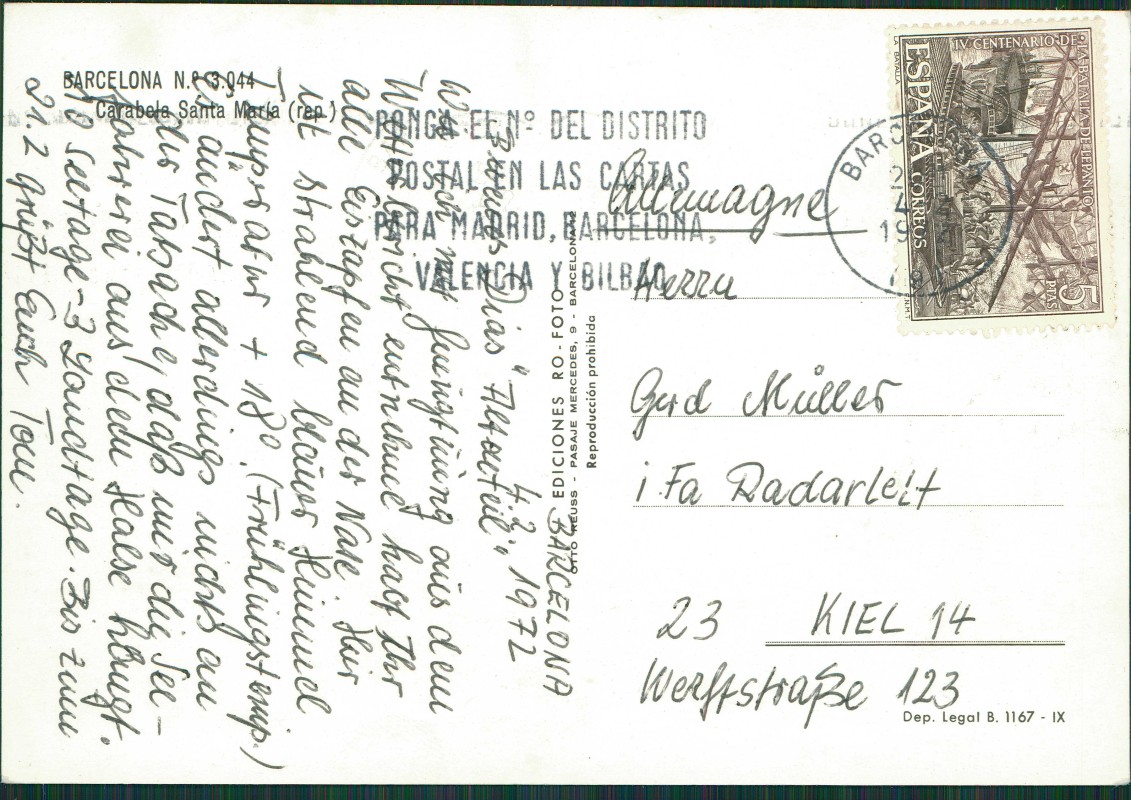 BARCELONA N.º 3.044
Carabela Santa María (rep.)
PONGA EL Nº DEL DISTRITO
POSTAL EN LAS CARTAS
PARA MADRID, BARCELONA,
VALENCIA Y BILBAO
IV CENTENARIO DE LA BATALLA DE LEPANTO
ESPAÑA CORREOS
5 PTAS
BARCELONA, 4.2.1972
Buenos Dias "Altarteil",
Wie ich mit Genugtuung aus dem
Wetterbericht entnehme habt Ihr
alle Eiszapfen an der Nase. Hier
ist strahlend blauer Himmel
Temperatur + 18° (Frühlingstemp.)
Es ändert allerdings nichts an
der Tatsache, daß mir die See-
fahrerei aus dem Halse hängt.
No Seetage - 3 Landtage. Bis zum
21.2 grüßt Euch Tom.
EDICIONES RO-FOTO
OTTO REUSS - PASAJE MERCEDES, 9 - BARCELONA
Reproducción prohibida
Allemagne
Herrn
Gerd Müller
i. Fa Radarleit
23 KIEL 14
Werftstraße 123
Dep. Legal B. 1167 - IX